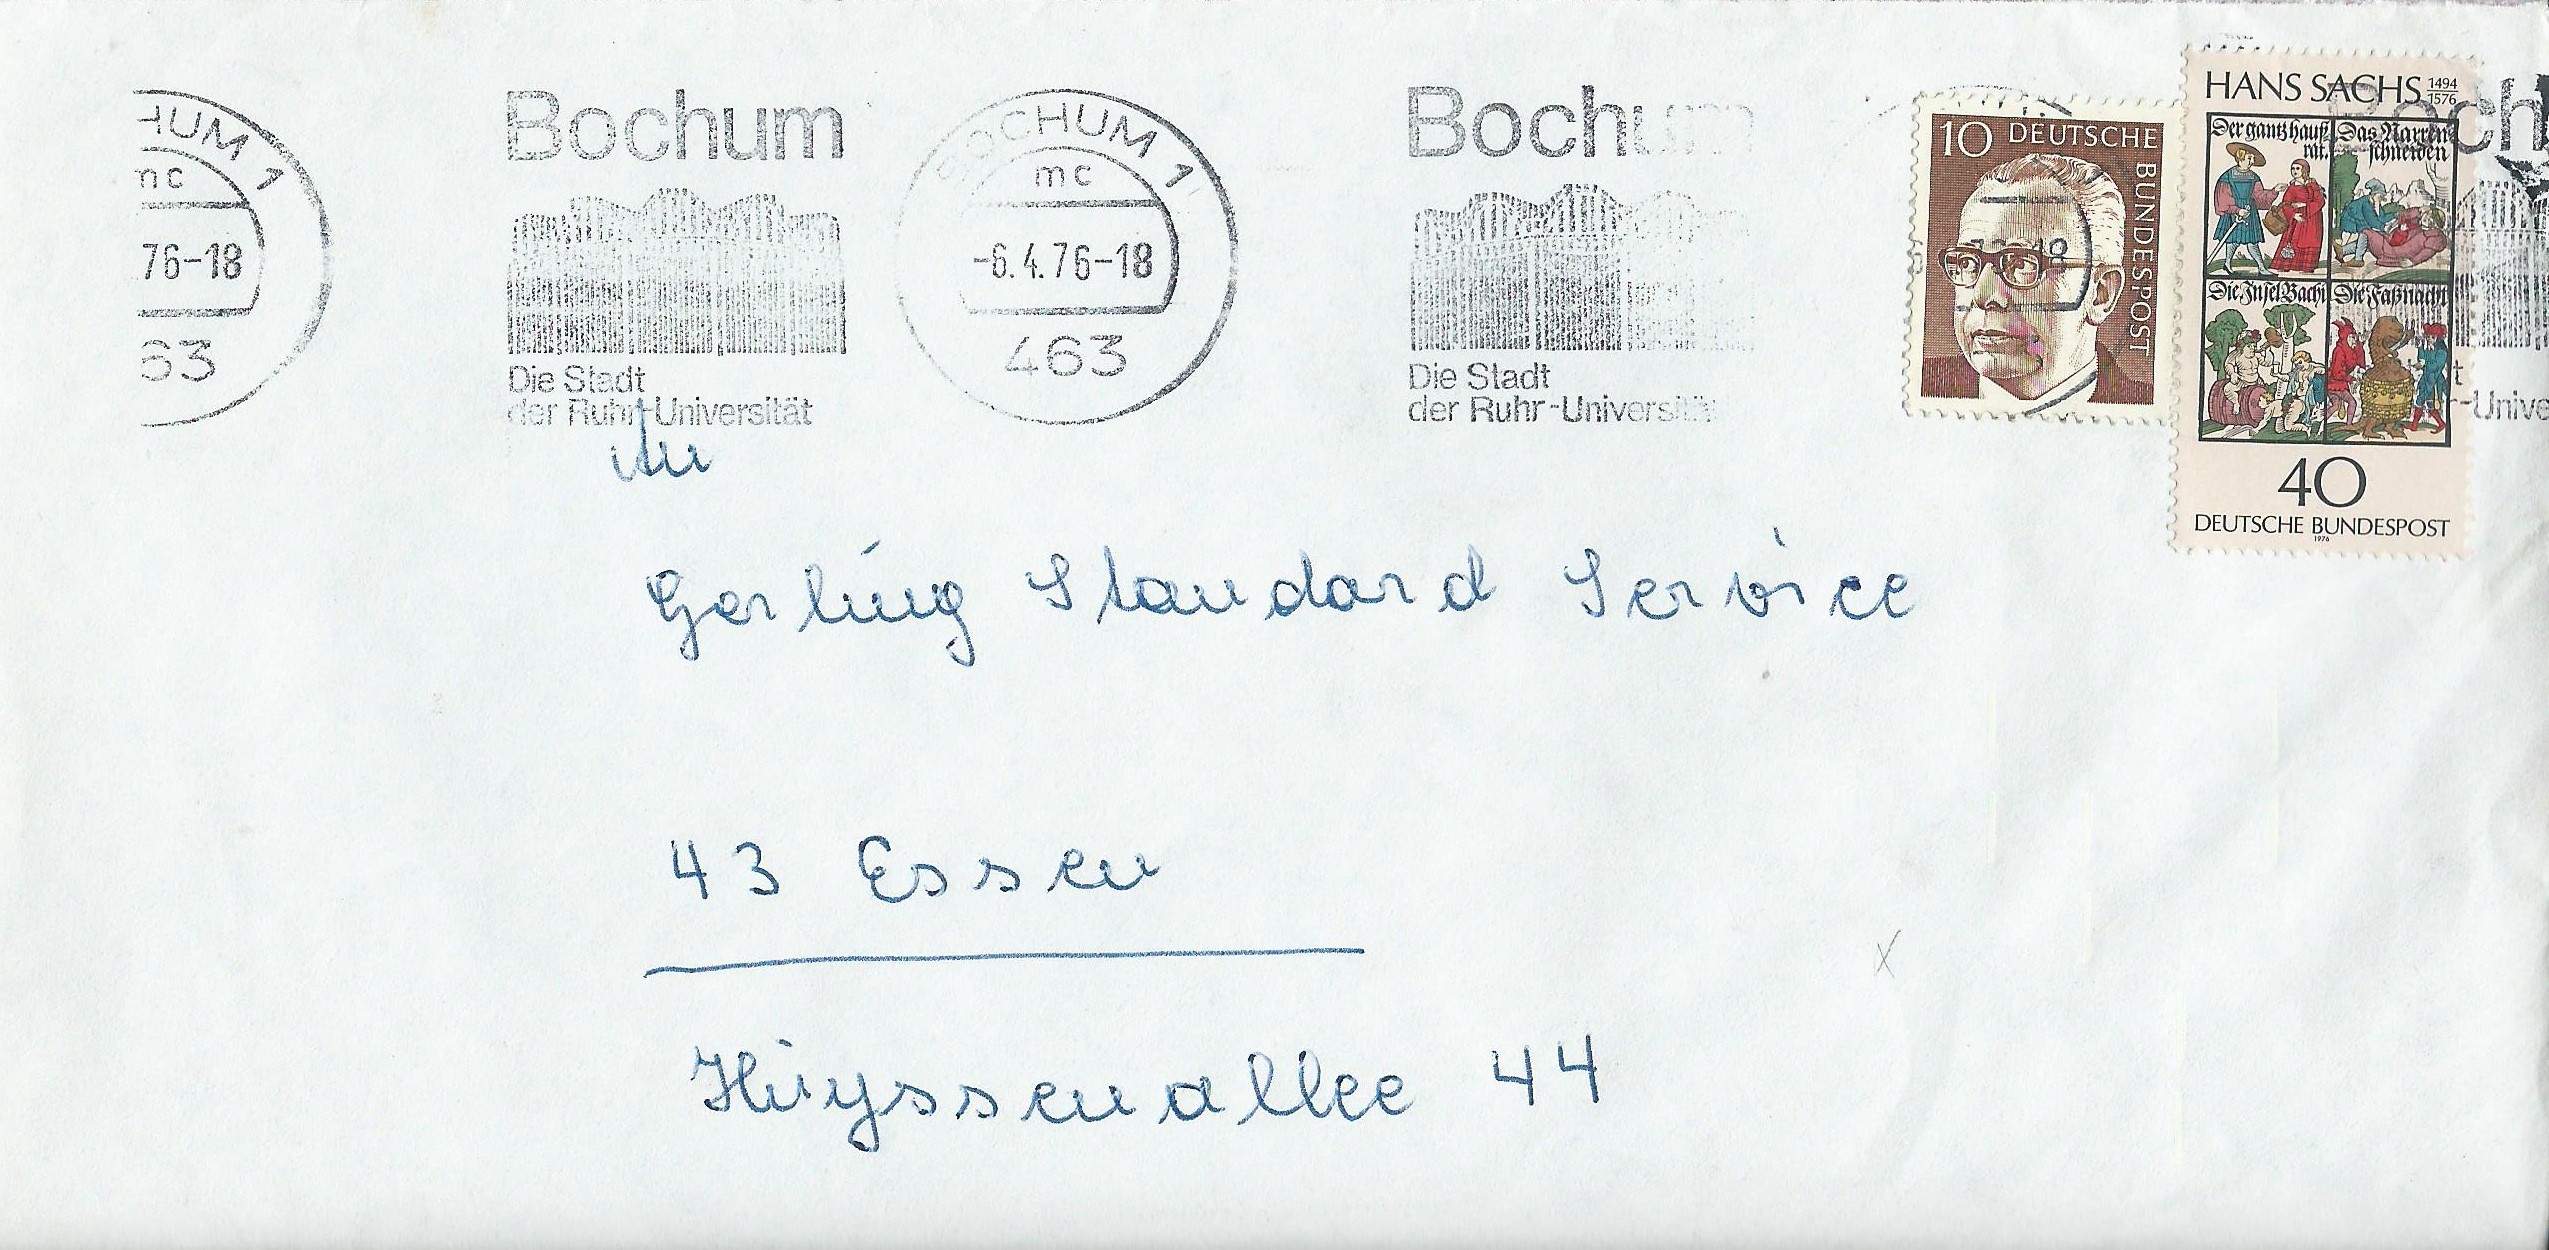 HUM 1
mc
76-18
63
Bochum
Die Stadt
der Ruhr-Universität
BOCHUM 1
mc
-6.4.76-18
463
Bochum
Die Stadt
der Ruhr-Universität
10 DEUTSCHE BUNDESPOST
18
HANS SACHS 1494 1576
Der gantz hauß rat.
Das Narren schneiden
Die Insel Bachi
Die Faßnacht
40
DEUTSCHE BUNDESPOST
1976
och
t
r-Unive
An
Gerling Standard Service
43 Essen
Huyssenallee 44